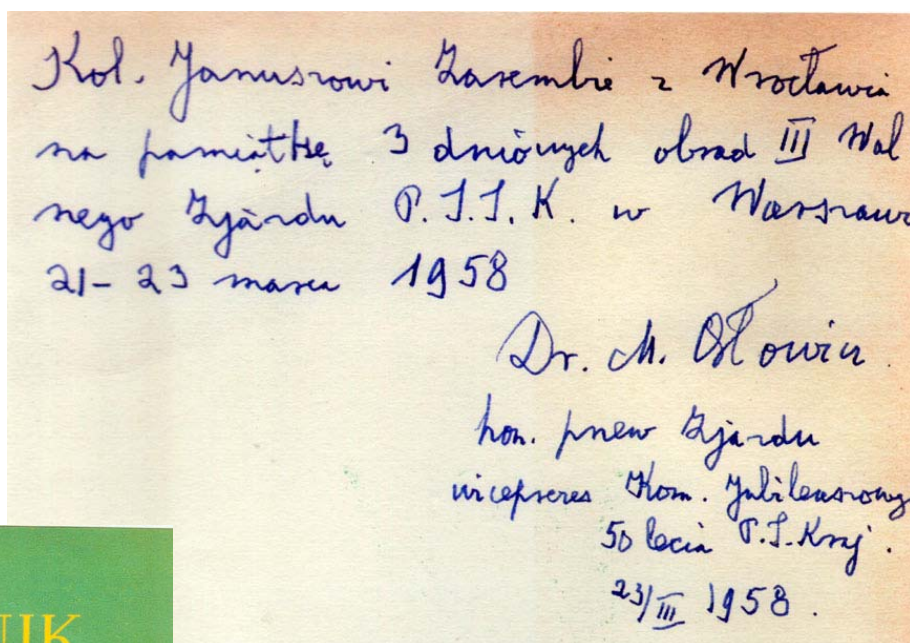 Kol. Januszowi Zarembie z Wrocławia
na pamiątkę 3 dniówych obrad III Wal
nego Zjazdu P.T.T.K. w Warszawi
21-23 marca 1958
Dr. M. Orłowicz.
hon. przew Zjazdu
wiceprezes Kom. Jubileuszowy
50 lecia P.T.Kraj.
23/III 1958.
NIK